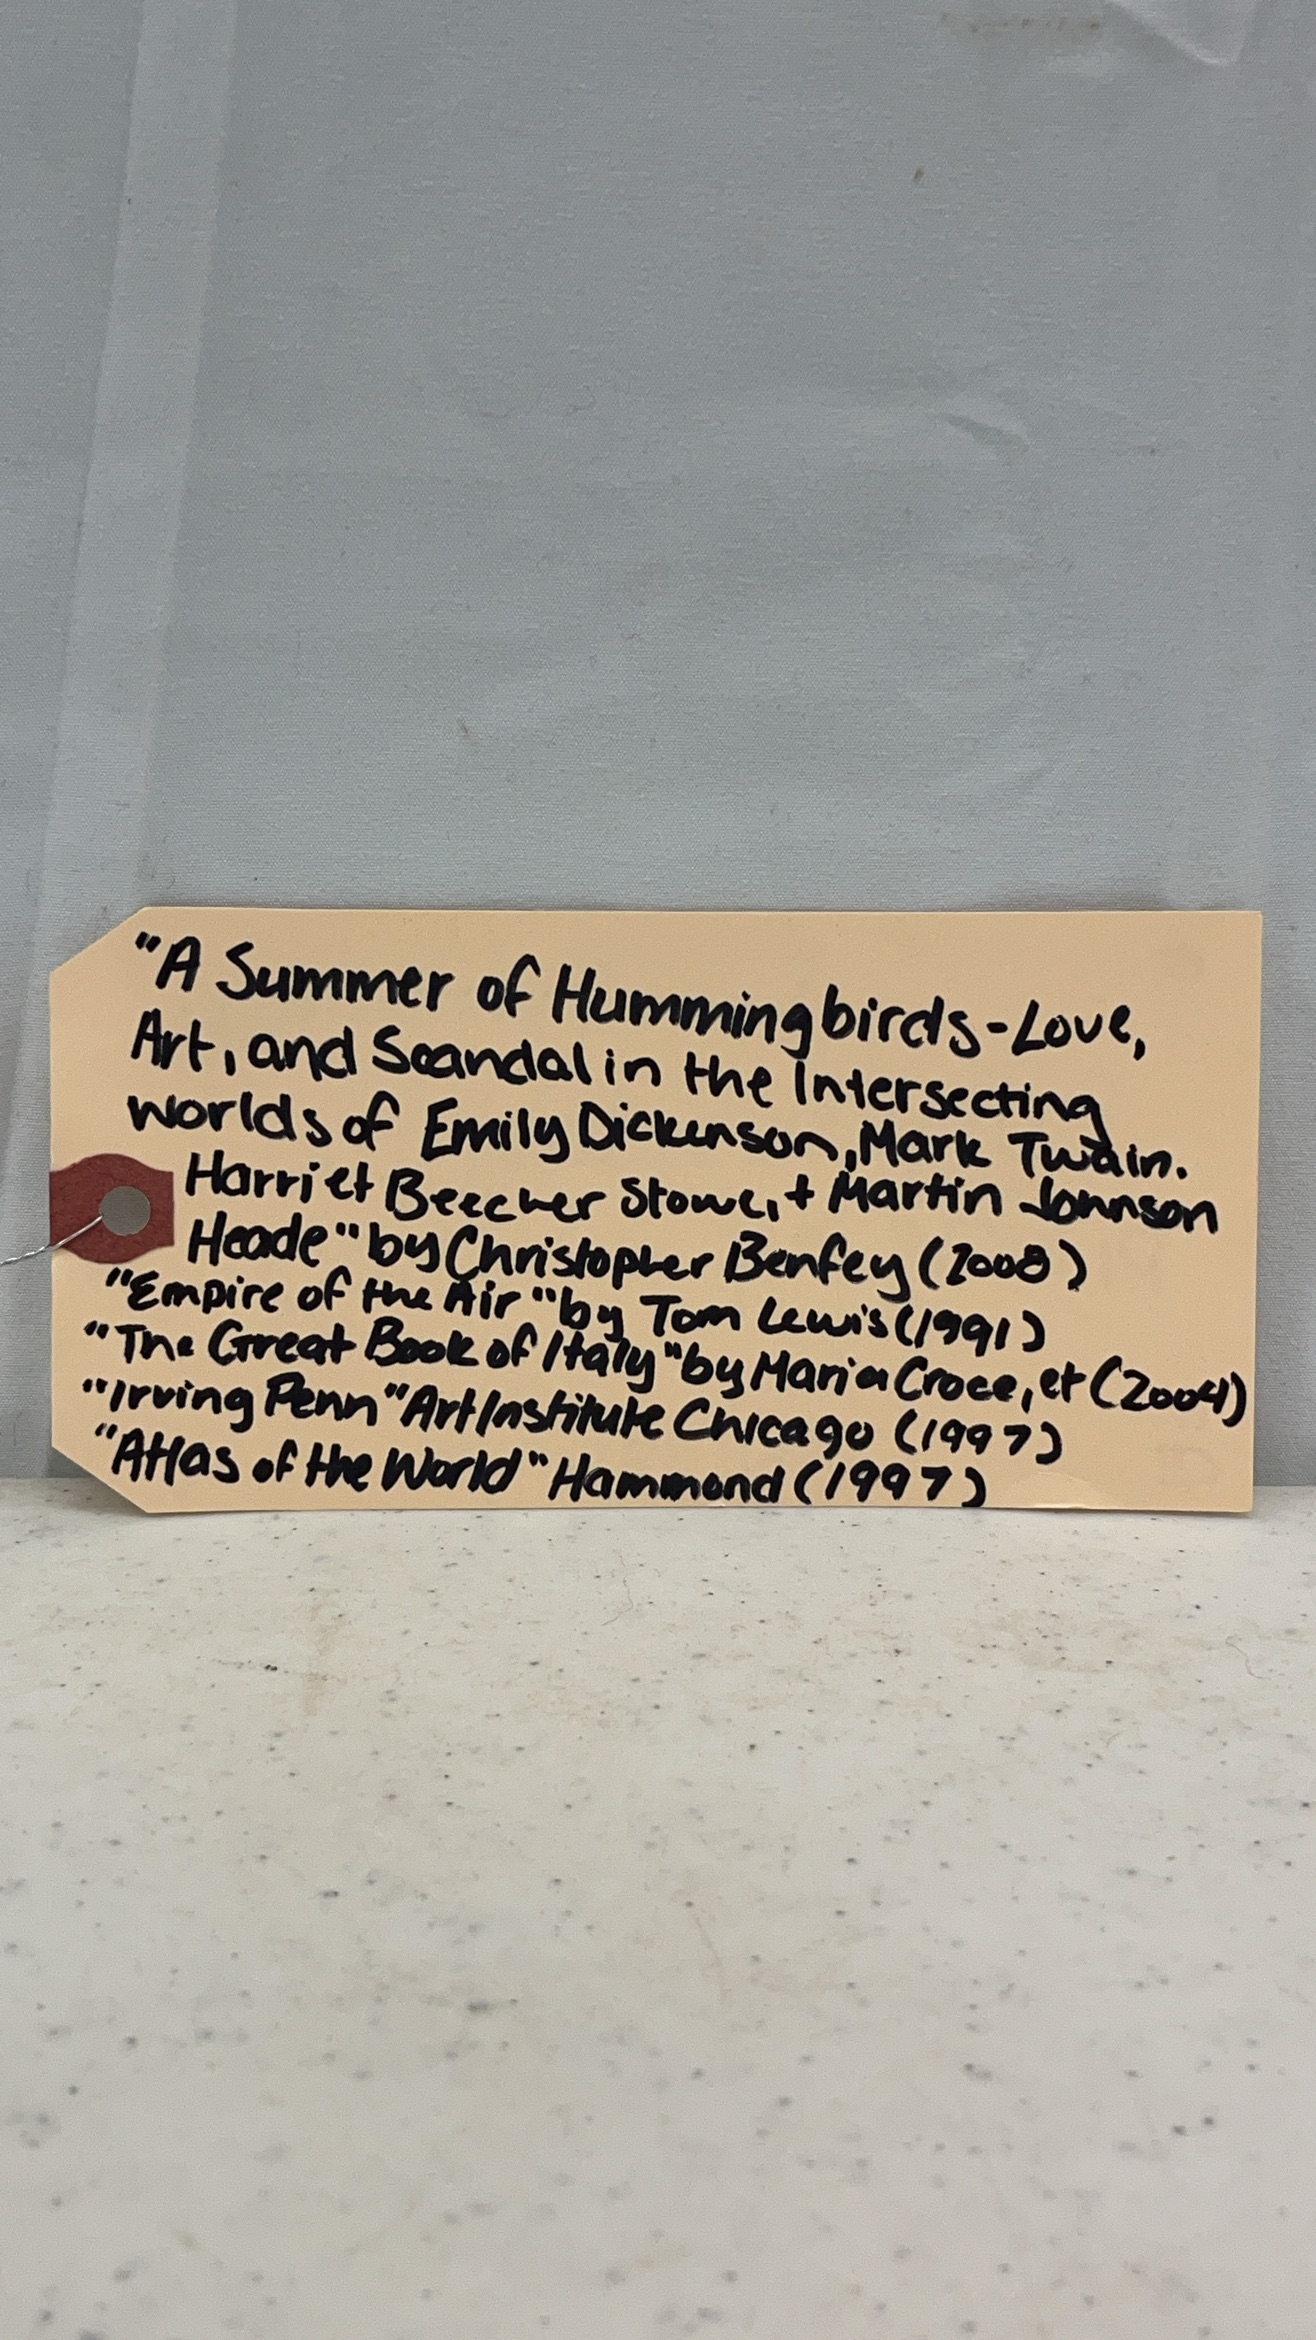 "A Summer of Hummingbirds - Love,
Art, and Scandal in the Intersecting
worlds of Emily Dickenson, Mark Twain.
Harriet Beecher Stowe, + Martin Johnson
Heade" by Christopher Benfey (2008)
"Empire of the Air" by Tom Lewis (1991)
"The Great Book of Italy" by Maria Croce, et (2004)
"Irving Penn" Art Institute Chicago (1997)
"Atlas of the World" Hammond (1997)